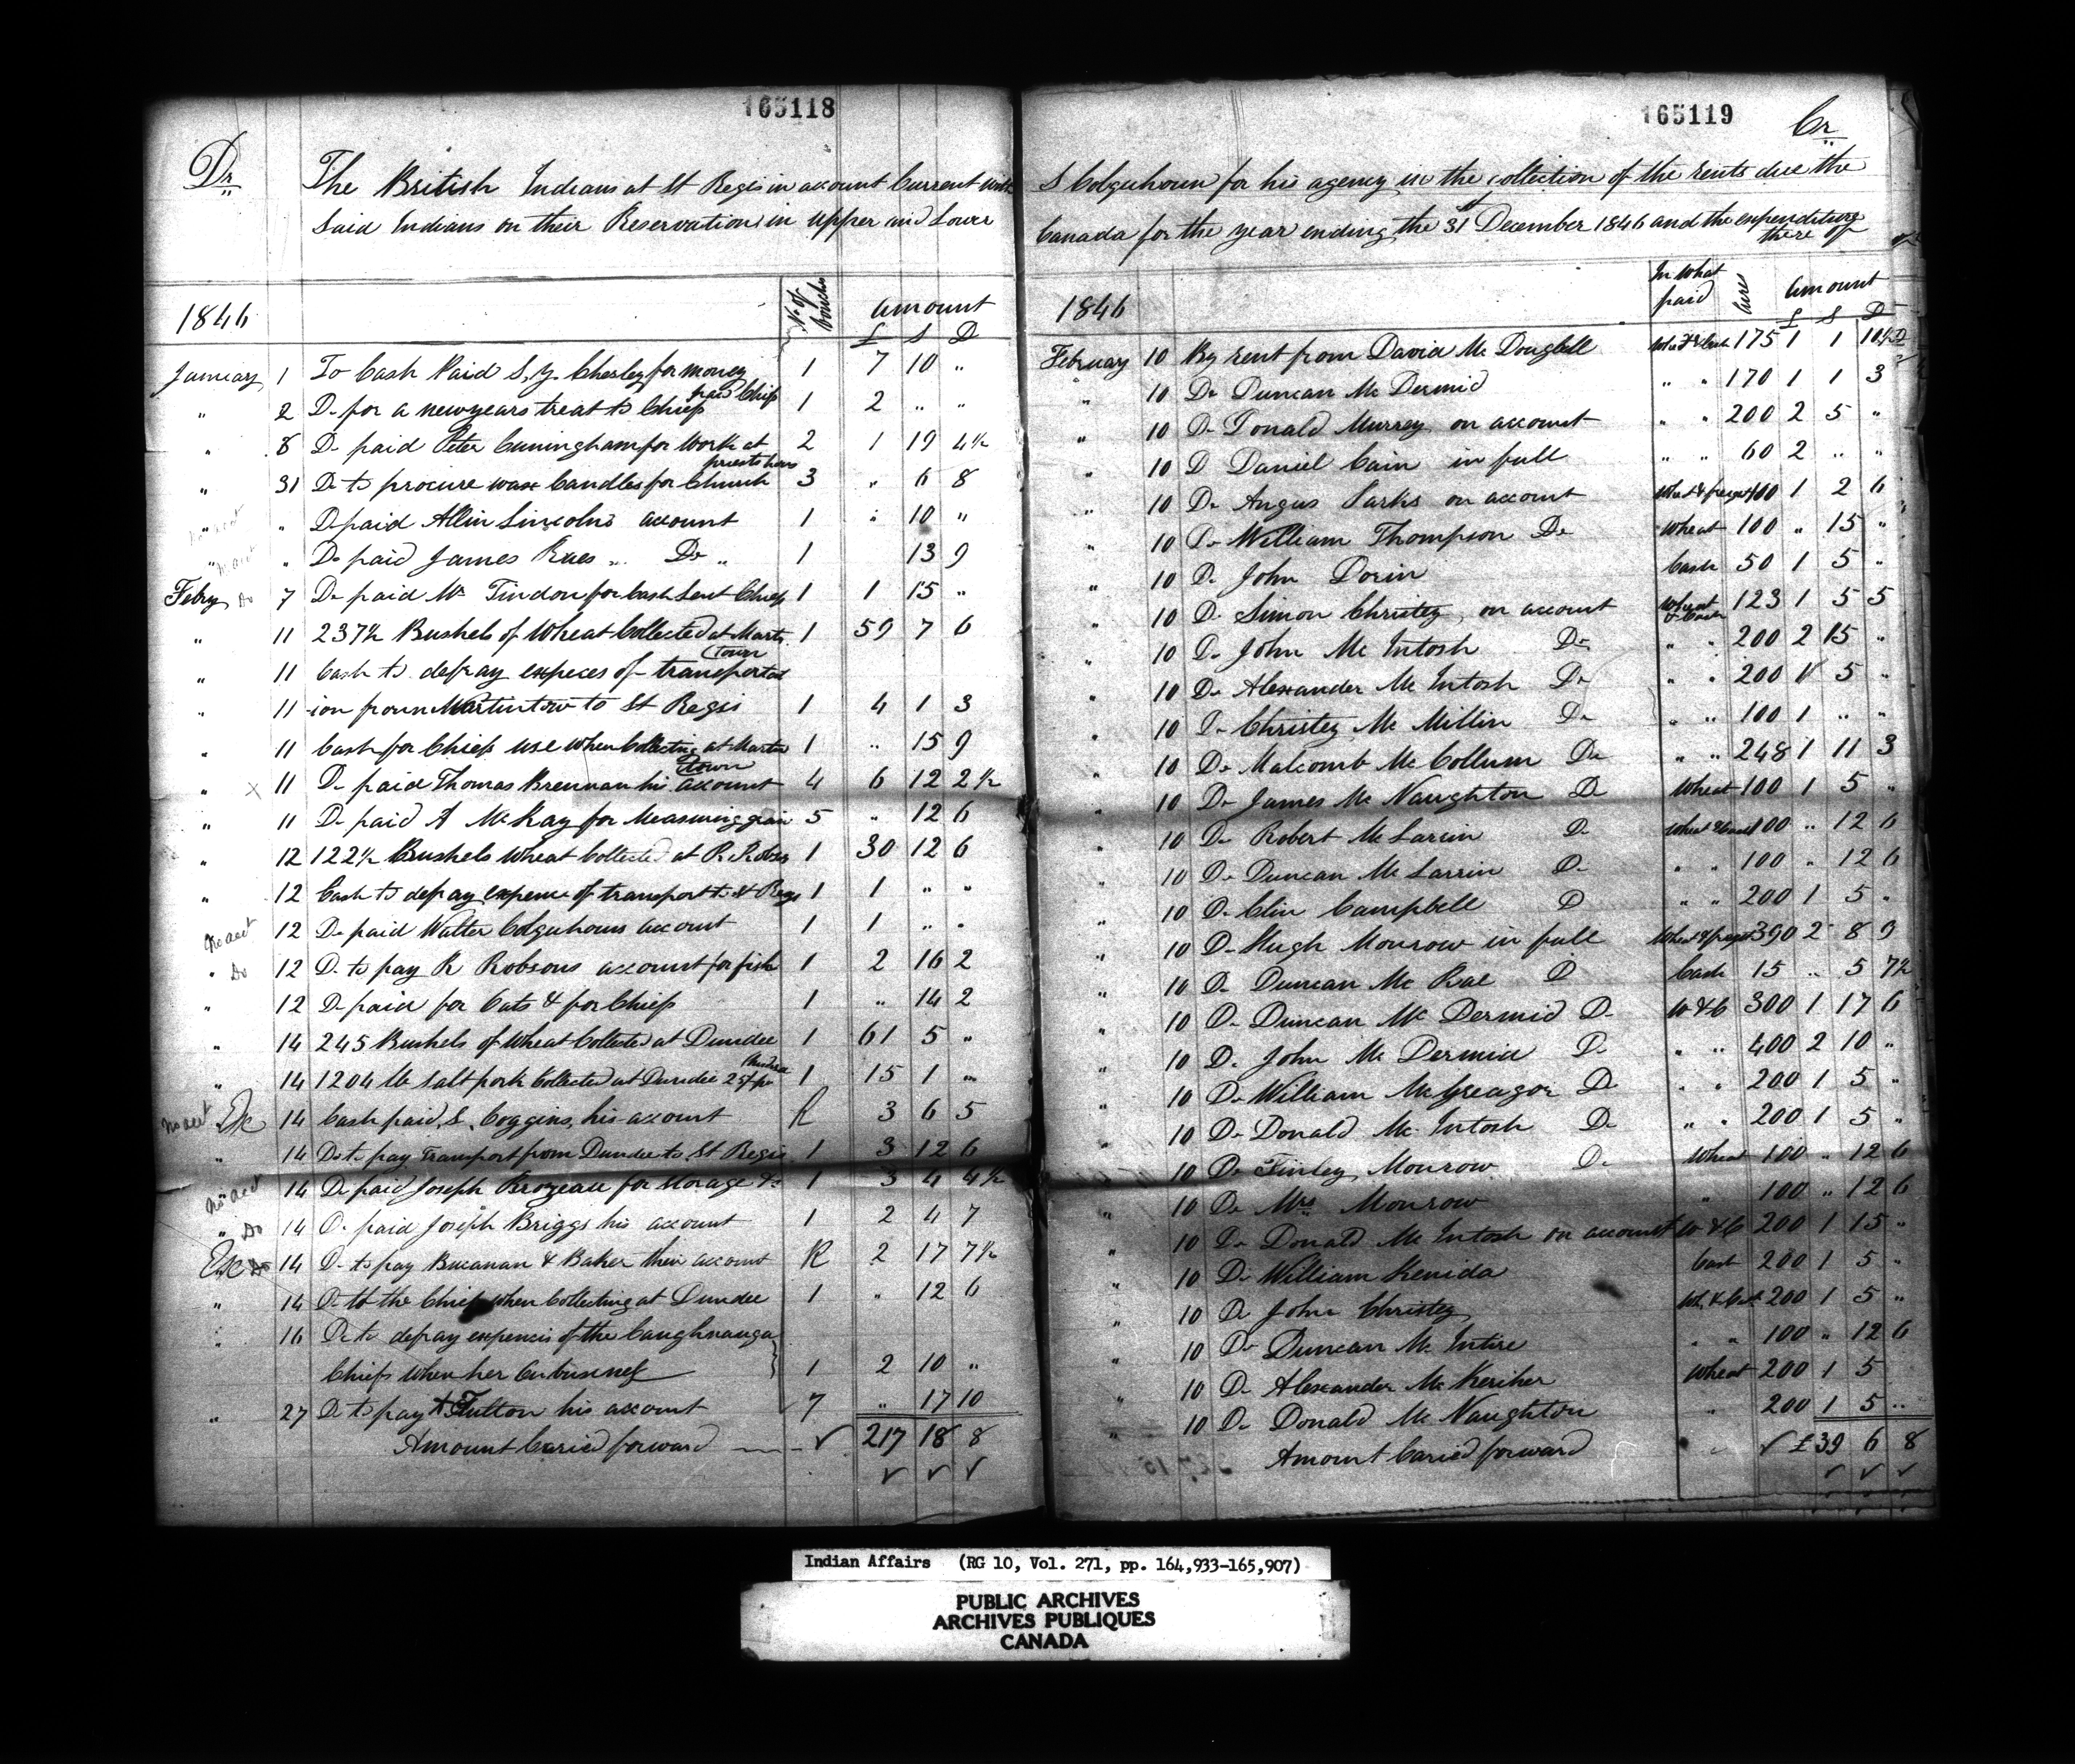 165118
Dr
The British Indians at St Regis in account Current with
Said Indians on their Reservations in upper and Lower
1846 No. of Vouchr Amount
£ S D
January 1 To Cash Paid S, Y. Chesley for money paid Chiefs 1 7 10 "
" 2 Do for a newyears treat to Chiefs 1 2 " "
" 8 Do paid Peter Cuningham for work at priests hous 2 1 19 4½
" 31 Do to procure wax Candles for Church 3 " 6 8
" " Do paid Allin Lincolns account 1 " 10 "
" " Do paid James Raes " Do " 1 13 9
Febry Do 7 Do paid Mr Tindon for Cash Lent Chiefs 1 1 15 "
" 11 237½ Bushels of Wheat Collected at Martin town 1 59 7 6
" 11 Cash to defray expeces of transportat
" 11 -ion from Martintow to St Regis 1 4 1 3
" 11 Cash for Chiefs use when Collecting at Martin town 1 " 15 9
" x 11 Do paid Thomas Brennan his account 4 6 12 2½
" 11 Do paid A McKay for Measuring grain 5 " 12 6
" 12 122½ Bushels Wheat Collected at R. Robsns 1 30 12 6
" 12 Cash to defray expence of transport to St Regis 1 1 " "
No acct 12 Do paid Walter Colquhouns account 1 1 " "
" Do 12 Do to pay R Robsons account for fish 1 2 16 2
" 12 Do paid for Oats & for Chiefs 1 " 14 2
" 14 245 Bushels of Wheat Collected at Dundee 1 61 5 "
" 14 1204 lb Salt pork Collected at Dundee 25/ pr Hundred 1 15 1 "
No acct 14 Cash paid, S. Coggins, his account R 3 6 5
" 14 Do to pay Transport from Dundee to St Regis 1 3 12 6
No acct 14 Do paid Joseph Brozeau for storage &c 1 3 4 4½
" Do 14 Do paid Joseph Briggs his account 1 2 4 7
Do 14 Do to pay Bucanan & Baker their account R 2 17 7½
" 14 Do to the Chiefs when Collecting at Dundee 1 " 12 6
" 16 Do to defray expences of the Caughnauga
Chiefs when her on business 1 2 10 "
" 27 Do to pay Fulton his account 7 " 17 10
Amount Caried forward 217 18 8
165119
Cr
S Colquhoun for his agency in the collection of the rents due the
Canada for the year ending the 31st December 1846 and the expenditure there of
1846 In What paid Acres Amount
£ S D
February 10 By rent from David Mc Dougell 175 1 1 10½
" 10 Do Duncan Mc Dermid " " 170 1 1 3
" 10 Do Donald Murrey on account " " 200 2 5 "
" 10 D Daniel Cain in full " " 60 2 " "
" 10 Do Angus on account 100 1 2 6
" 10 Do William Thompson Do Wheat 100 " 15 "
" 10 Do John Dorin Cash 50 1 5 "
" 10 Do Simon Christey, on account Wheat & Cash 123 1 5 5
" 10 Do John Mc Intosh Do " " 200 2 15 "
" 10 Do Alexander Mc Intosh Do " " 200 1 5 "
" 10 Do Christey Mc Millin Do " " 100 1 " "
" 10 Do Malcomb Mc Collum Do " " 248 1 11 3
" 10 Do James Mc Naughton D Wheat 100 1 5 "
" 10 Do Robert Mc Larrin D Wheat & Cash 100 " 12 6
" 10 Do Duncan Mc Larrin D " " 100 " 12 6
" 10 Do Clin Campbell D " " 200 1 5 "
" 10 Do Hugh Monrow in full 390 2 8 9
" 10 Do Duncan Mc Rae D Cash 15 " 5 7½
" 10 Do Duncan Mc Dermid Do W & C 300 1 17 6
" 10 Do John Mc Dermid D " " 400 2 10 "
" 10 Do William McGreagor D " " 200 1 5 "
" 10 Do Donald Mc Intosh D " " 200 1 5 "
" 10 Do Finley Monrow D Wheat 100 " 12 6
" 10 Do Mrs Monrow " 100 " 12 6
" 10 Do Donald Mc Intosh on account W & C 200 1 15 "
" 10 Do William Kenida Cash 200 1 5 "
" 10 D John Christey 200 1 5 "
" 10 Do Duncan Mc Intire " " 100 " 12 6
" 10 Do Alexander McKeriher Wheat 200 1 5
" 10 Do Donald Mc Naughton " 200 1 5 "
Amount Caried forward £39 6 8
Indian Affairs (RG 10, Vol. 271, pp. 164,933-165,907)
PUBLIC ARCHIVES
ARCHIVES PUBLIQUES
CANADA